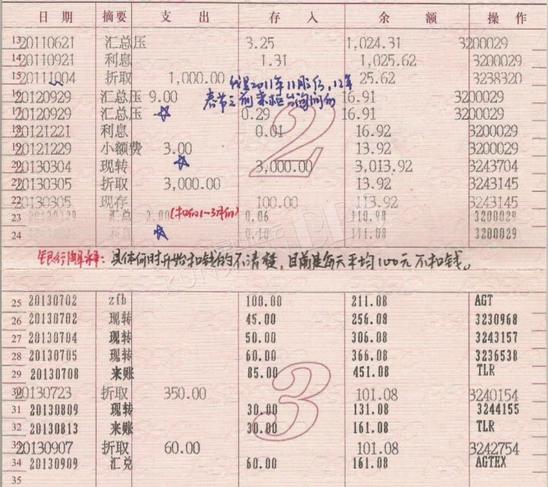 日期 摘要 支出 存入 余额 操作
13 20110621 汇总压 3.25 1,024.31 3200029
14 20110921 利息 1.31 1,025.62 3200029
15 20111004 折取 1,000.00 25.62 3238320
2011年11月份,12年
16 20120929 汇总压 9.00 16.91 3200029
春节之前来
17 20120929 汇总压 0.29 16.91 3200029
18 20121221 利息 0.01 16.92 3200029
19 20121229 小额费 3.00 13.92 3200029
20 20130304 现转 3,000.00 3,013.92 3243704
21 20130305 折取 3,000.00 13.92 3243145
22 20130305 现存 100.00 113.92 3243145
23 汇总 3.00 (扣1~3月份) 0.06 110.98 3200029
24 111.08 3200029
银行解释:具体何时开始扣钱的不清楚,目前是每天平均100元不扣钱。
25 20130702 zfb 100.00 211.08 AGT
26 20130702 现转 45.00 256.08 3230968
27 20130704 现转 50.00 306.08 3243157
28 20130705 现转 60.00 366.08 3236538
29 20130708 来账 85.00 451.08 TLR
30 20130723 折取 350.00 101.08 3240154
31 20130809 现转 30.00 131.08 3244155
32 20130813 来账 30.00 161.08 TLR
33 20130907 折取 60.00 101.08 3242754
34 20130909 汇兑 60.00 161.08 AGTEX
35
2
3